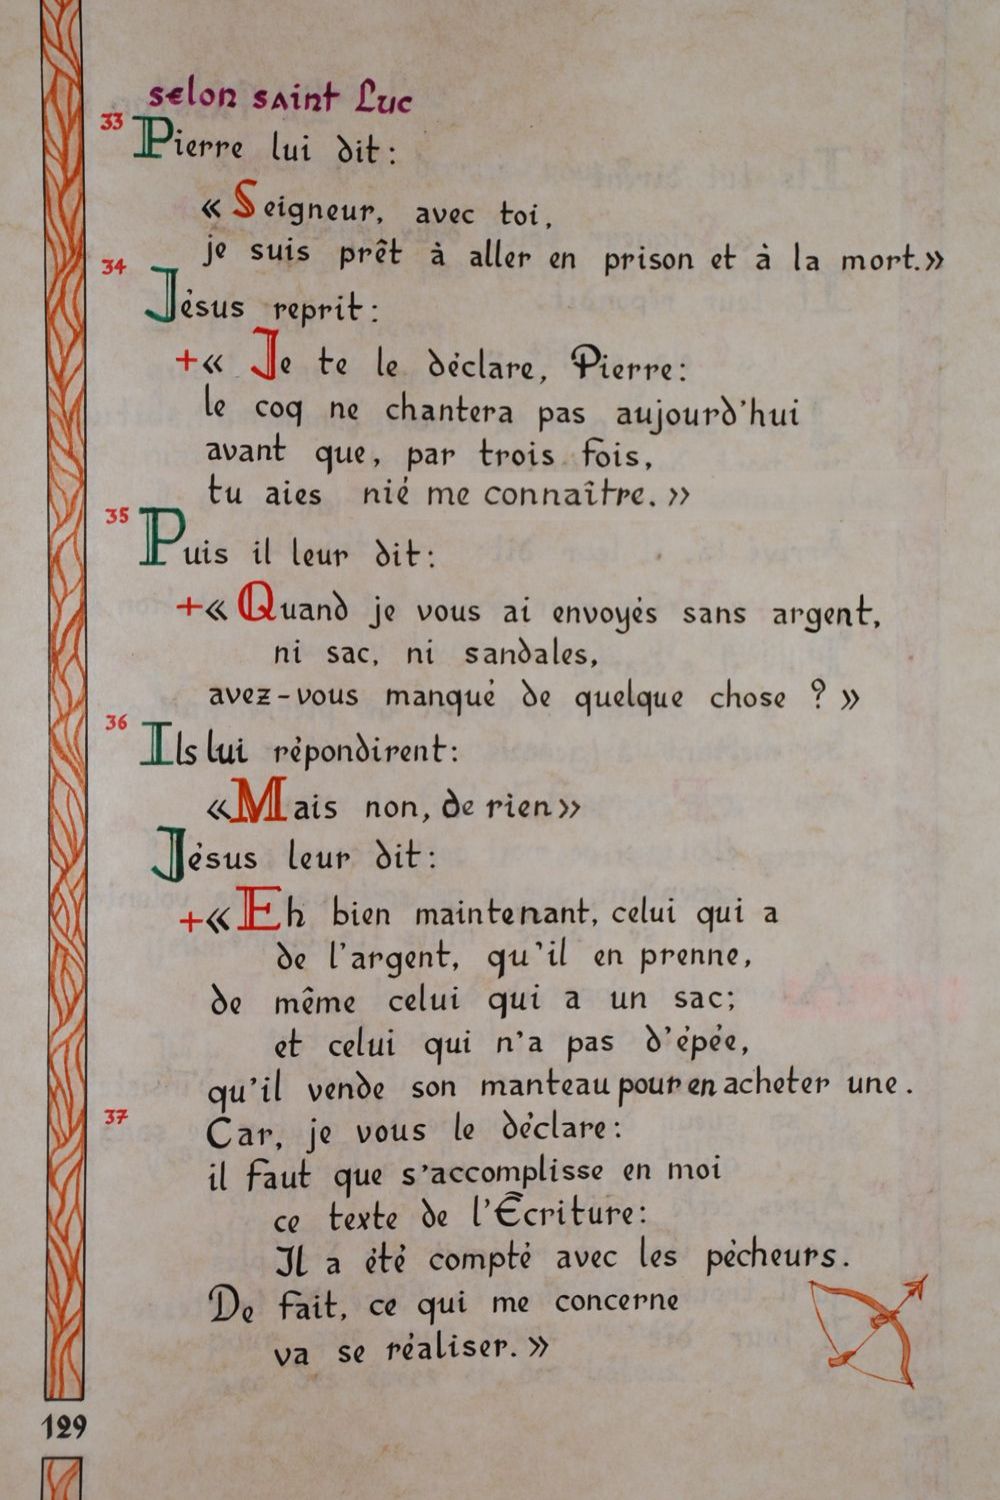 selon saint Luc
33
Pierre lui dit:
« Seigneur, avec toi,
je suis prêt à aller en prison et à la mort.»
34
Jésus reprit:
+« Je te le déclare, Pierre:
le coq ne chantera pas aujourd'hui
avant que, par trois fois,
tu aies nié me connaître. »
35
Puis il leur dit:
+« Quand je vous ai envoyés sans argent,
ni sac, ni sandales,
avez-vous manqué de quelque chose ? »
36
Ils lui répondirent:
«Mais non, de rien»
Jésus leur dit:
+« Eh bien maintenant, celui qui a
de l'argent, qu'il en prenne,
de même celui qui a un sac;
et celui qui n'a pas d'épée,
qu'il vende son manteau pour en acheter une.
37
Car, je vous le déclare:
il faut que s'accomplisse en moi
ce texte de l'Écriture:
Il a été compté avec les pécheurs.
De fait, ce qui me concerne
va se réaliser. »
129